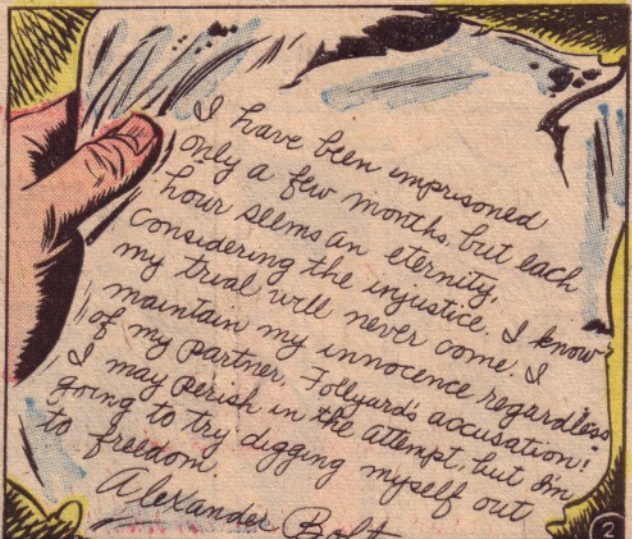 I have been imprisoned
only a few months, but each
hour seems an eternity,
considering the injustice. I know
my trial will never come. I
maintain my innocence regardless
of my partner, Follyard's accusation!
I may perish in the attempt, but I'm
going to try digging myself out
to freedom.
Alexander Bolt
2